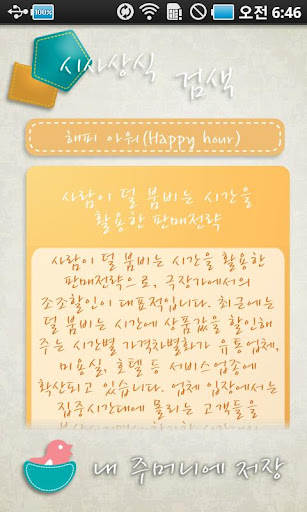 100%
오전 6:46
시사상식 검색
해피 아워(Happy hour)
사람이 덜 붐비는 시간을
활용한 판매전략
사람이 덜 붐비는 시간을 활용한
판매전략으로, 극장가에서의
조조할인이 대표적입니다. 최근에는
덜 붐비는 시간에 상품값을 할인해
주는 시간별 가격차별화가 유통업체,
미용실, 호텔 등 서비스업종에
확산되고 있습니다. 업체 입장에서는
집중시간대에 몰리는 고객들을
내 주머니에 저장